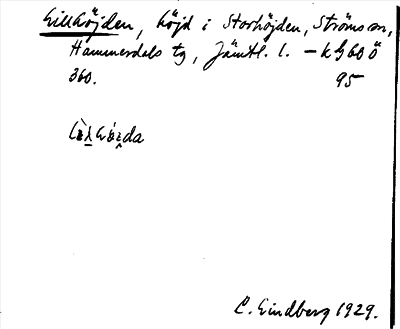 Lillhöjden, höjd i Storhöjden, Ströms sn,
Hammerdals tg, Jämtl. l. – kbg 60 ö
360. 95
C. Lindberg 1929.